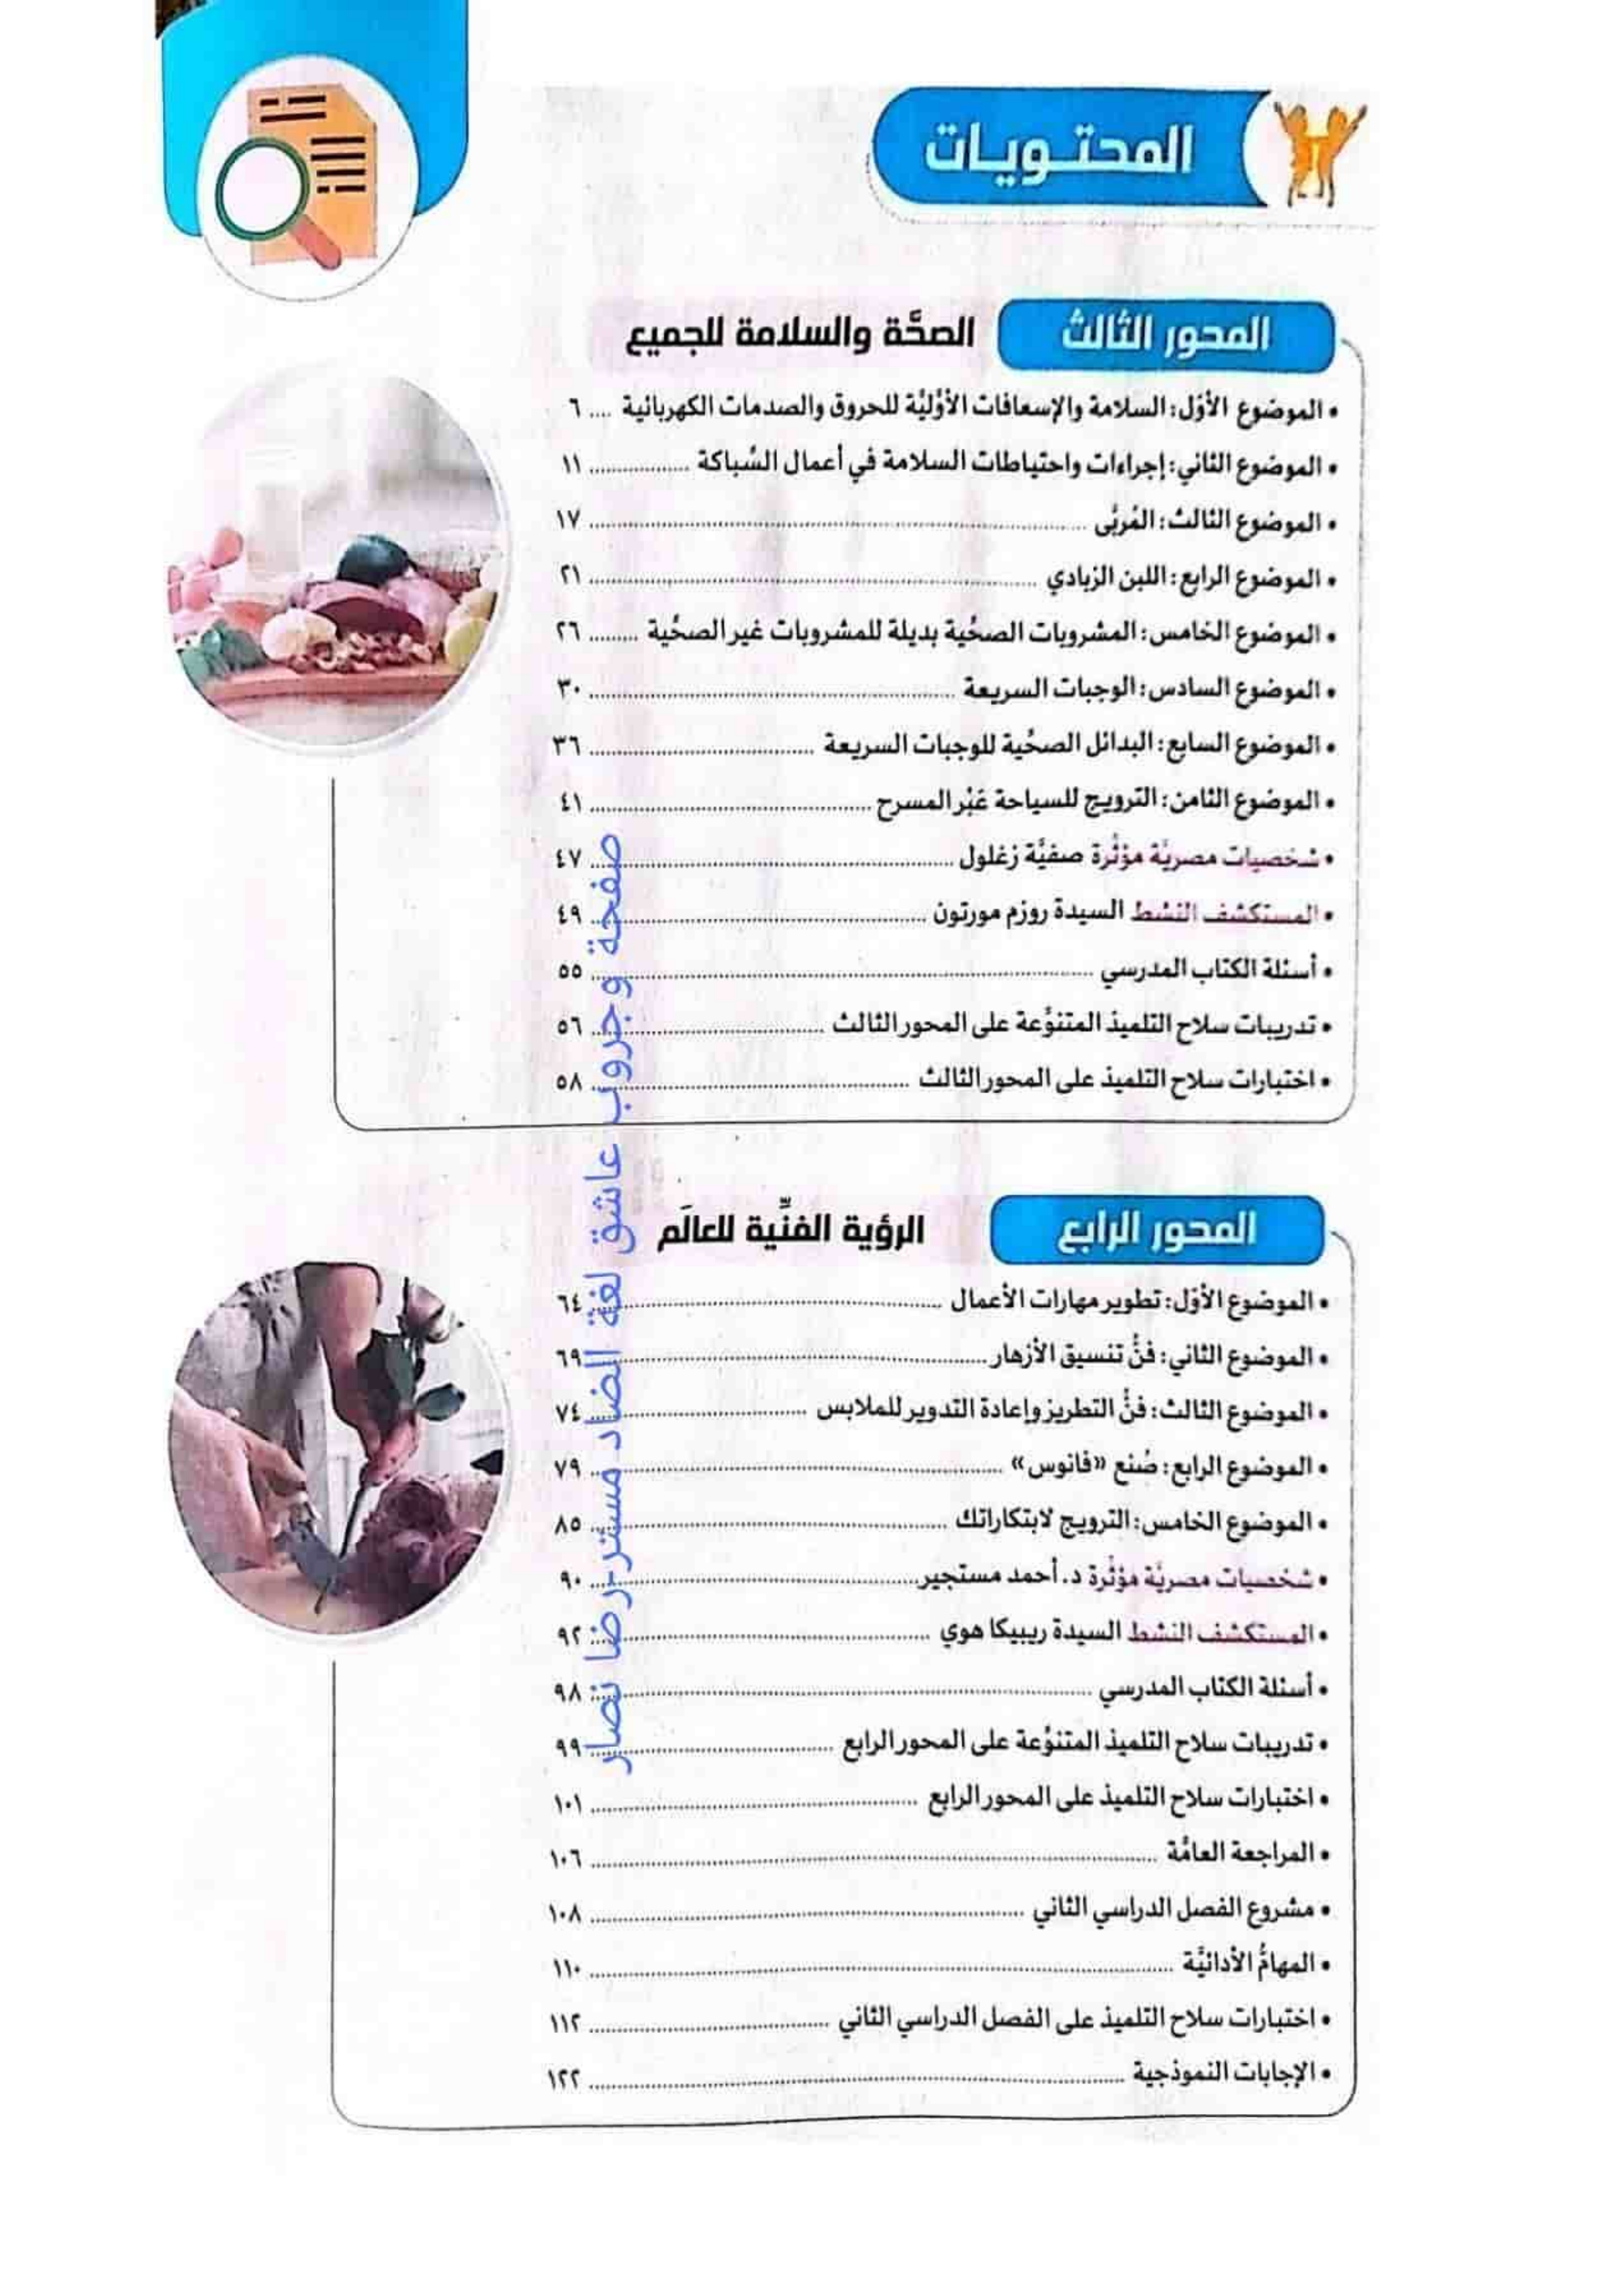 المحتويات
المحور الثالث الصحَّة والسلامة للجميع
• الموضوع الأوَّل: السلامة والإسعافات الأوَّليَّة للحروق والصدمات الكهربائية .... ٦
• الموضوع الثاني: إجراءات واحتياطات السلامة في أعمال السِّباكة ................. ١١
• الموضوع الثالث: المُربَّى ................. ١٧
• الموضوع الرابع: اللبن الزبادي ................. ٢١
• الموضوع الخامس: المشروبات الصحِّية بديلة للمشروبات غير الصحِّية ......... ٢٦
• الموضوع السادس: الوجبات السريعة ................. ٣٠
• الموضوع السابع: البدائل الصحِّية للوجبات السريعة ................. ٣٦
• الموضوع الثامن: الترويج للسياحة عَبْر المسرح ................. ٤١
• شخصيات مصريَّة مؤثِّرة صفيَّة زغلول ................. ٤٧
• المستكشف النشط السيدة روزم مورتون ................. ٤٩
• أسئلة الكتاب المدرسي ................. ٥٥
• تدريبات سلاح التلميذ المتنوِّعة على المحور الثالث ................. ٥٦
• اختبارات سلاح التلميذ على المحور الثالث ................. ٥٨
المحور الرابع الرؤية الفنِّية للعالَم
• الموضوع الأوَّل: تطوير مهارات الأعمال ................. ٦٤
• الموضوع الثاني: فنُّ تنسيق الأزهار ................. ٦٩
• الموضوع الثالث: فنُّ التطريز وإعادة التدوير للملابس ................. ٧٤
• الموضوع الرابع: صُنع «فانوس» ................. ٧٩
• الموضوع الخامس: الترويج لابتكاراتك ................. ٨٥
• شخصيات مصريَّة مؤثِّرة د. أحمد مستجير ................. ٩٠
• المستكشف النشط السيدة ريبيكا هوي ................. ٩٢
• أسئلة الكتاب المدرسي ................. ٩٨
• تدريبات سلاح التلميذ المتنوِّعة على المحور الرابع ................. ٩٩
• اختبارات سلاح التلميذ على المحور الرابع ................. ١٠١
• المراجعة العامَّة ................. ١٠٦
• مشروع الفصل الدراسي الثاني ................. ١٠٨
• المهامُّ الأدائيَّة ................. ١١٠
• اختبارات سلاح التلميذ على الفصل الدراسي الثاني ................. ١١٢
• الإجابات النموذجية ................. ١٢٢
صفحة وجروب عاشق لغة الضاد مستر-رضا نصار